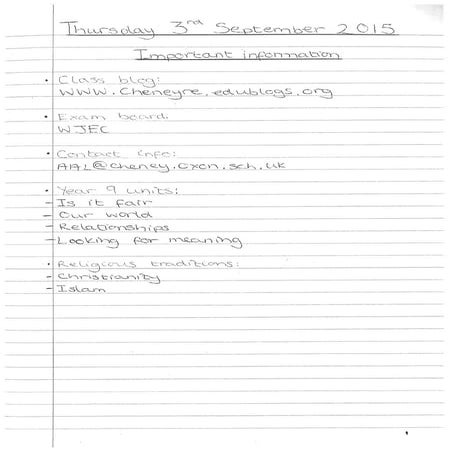 Thursday 3rd September 2015
Important information
• Class blog:
www.cheneyre.edublogs.org
• Exam board.
WJEC
• Contact info:
AAL@cheney.oxon.sch.uk
• Year 9 units:
- Is it fair
- Our world
- Relationships
- Looking for meaning
• Religious traditions:
- Christianity
- Islam